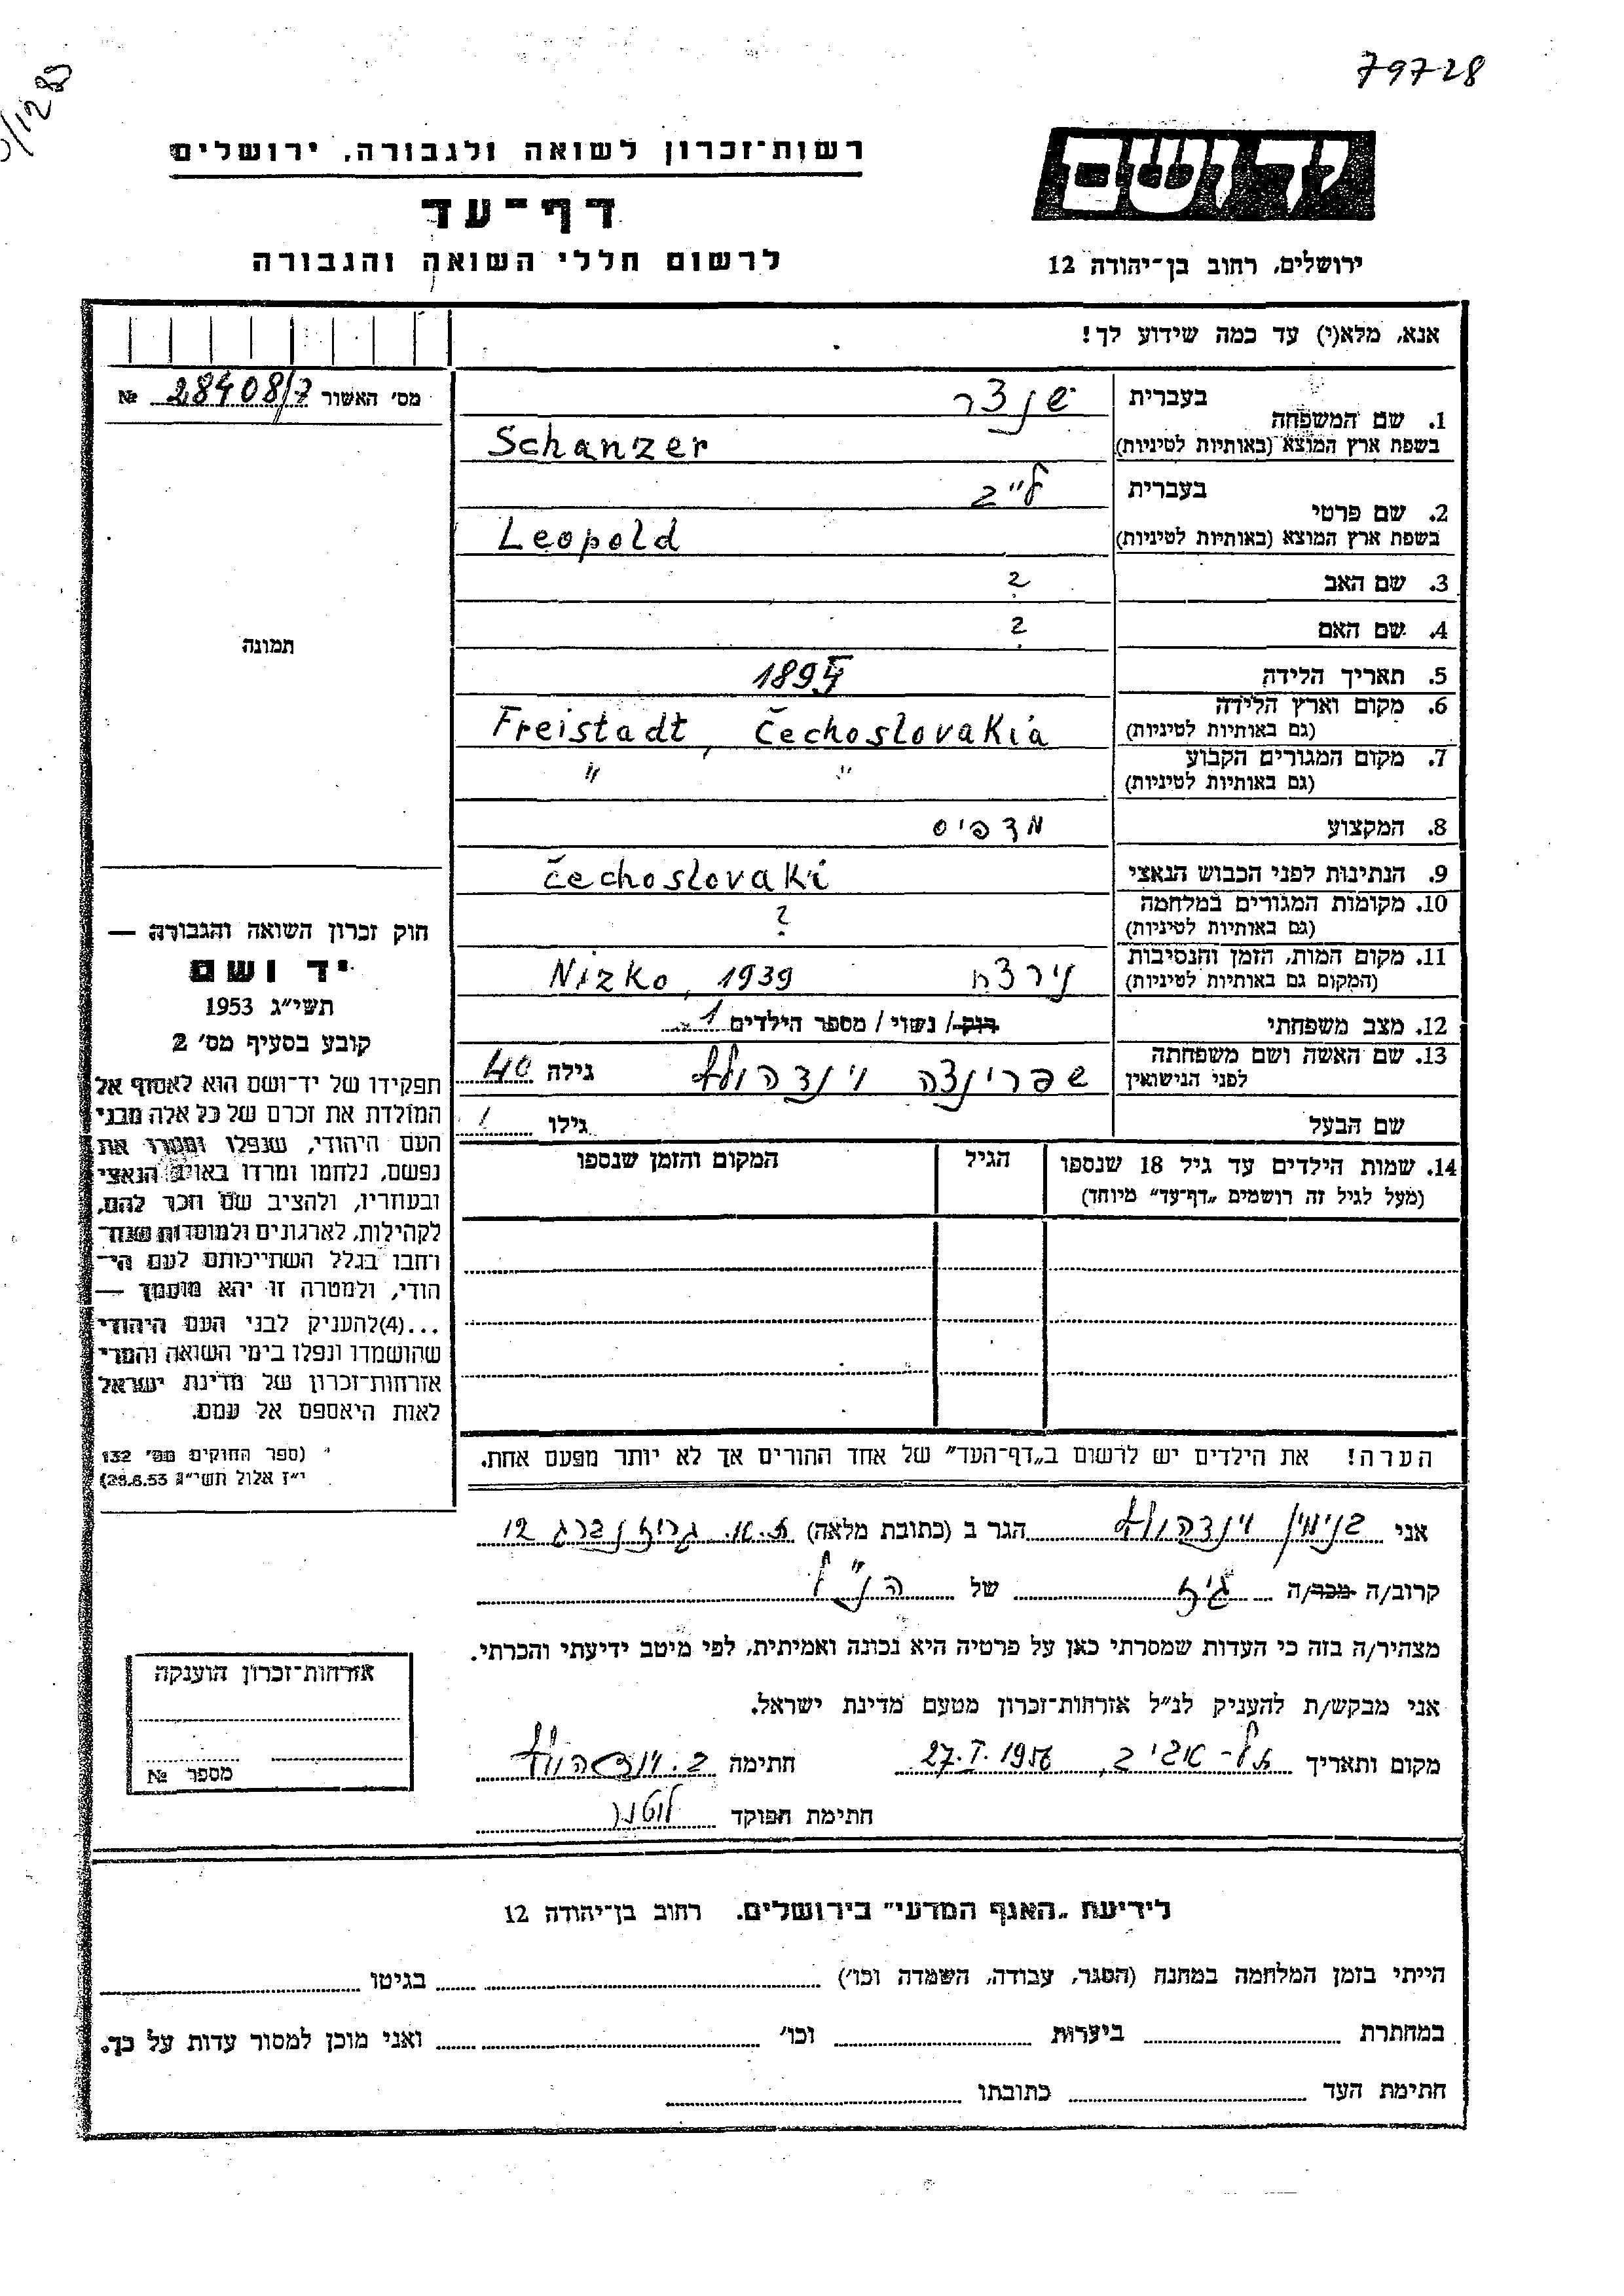 79728
רשות־זכרון לשואה ולגבורה, ירושלים
דף־עד
לרשום חללי השואה והגבורה
ידושם
ירושלים, רחוב בן־יהודה 12
אנא, מלא(י) עד כמה שידוע לך!
מס׳ האשור 28408/7 №
תמונה
1. שם המשפחה בעברית שנצר
בשפת ארץ המוצא (באותיות לטיניות) Schanzer
2. שם פרטי בעברית ל״ב
בשפת ארץ המוצא (באותיות לטיניות) Leopold
3. שם האב ?
4. שם האם ?
5. תאריך הלידה
6. מקום וארץ הלידה (גם באותיות לטיניות) Freistadt, Čechoslovakia
7. מקום המגורים הקבוע (גם באותיות לטיניות) " "
8. המקצוע מדפיס
9. הנתינות לפני הכבוש הנאצי čechoslovaki
10. מקומות המגורים במלחמה (גם באותיות לטיניות) ?
11. מקום המות, הזמן והנסיבות (המקום גם באותיות לטיניות) נירצח Nizko, 1939
12. מצב משפחתי רוק/ נשוי/ מספר הילדים 1
13. שם האשה ושם משפחתה לפני הנישואין שפרינצה וינדהולץ גילה 40
שם הבעל גילו /
14. שמות הילדים עד גיל 18 שנספו
(מעל לגיל זה רושמים „דף־עד״ מיוחד)
הגיל
המקום והזמן שנספו
הערה! את הילדים יש לרשום ב„דף־העד״ של אחד ההורים אך לא יותר מפעם אחת.
חוק זכרון השואה והגבורה —
יד ושם
תשי״ג 1953
קובע בסעיף מס׳ 2
תפקידו של יד־ושם הוא לאסוף אל
המולדת את זכרם של כל אלה מבני
העם היהודי, שנפלו ומסרו את
נפשם, נלחמו ומרדו באויב הנאצי
ובעוזריו, ולהציב שם וזכר להם,
לקהילות, לארגונים ולמוסדות שנח־
רבו בגלל השתייכותם לעם הי־
הודי, ולמטרה זו יהא מוסמך —
...(4)להעניק לבני העם היהודי
שהושמדו ונפלו בימי השואה והמרי
אזרחות־זכרון של מדינת ישראל
לאות היאספם אל עמם.
(ספר החוקים מס׳ 132
י״ז אלול תשי״ג 28.8.53)
אני בנימין וינדהולץ הגר ב (כתובת מלאה) ת.א. גרוזנברג 12
קרוב/ה מכר/ה גיס של הנ״ל
מצהיר/ה בזה כי העדות שמסרתי כאן על פרטיה היא נכונה ואמיתית, לפי מיטב ידיעתי והכרתי.
אני מבקש/ת להעניק לנ״ל אזרחות־זכרון מטעם מדינת ישראל.
מקום ותאריך תל־אביב, 27.I.1956 חתימה ב. וינדהולץ
חתימת הפוקד
אזרחות־זכרון הוענקה
מספר №
לידיעת „האגף המדעי״ בירושלים. רחוב בן־יהודה 12
הייתי בזמן המלחמה במחנה (הסגר, עבודה, השמדה וכו׳) בגיטו
במחתרת ביערות וכו׳ ואני מוכן למסור עדות על כך.
חתימת העד כתובתו